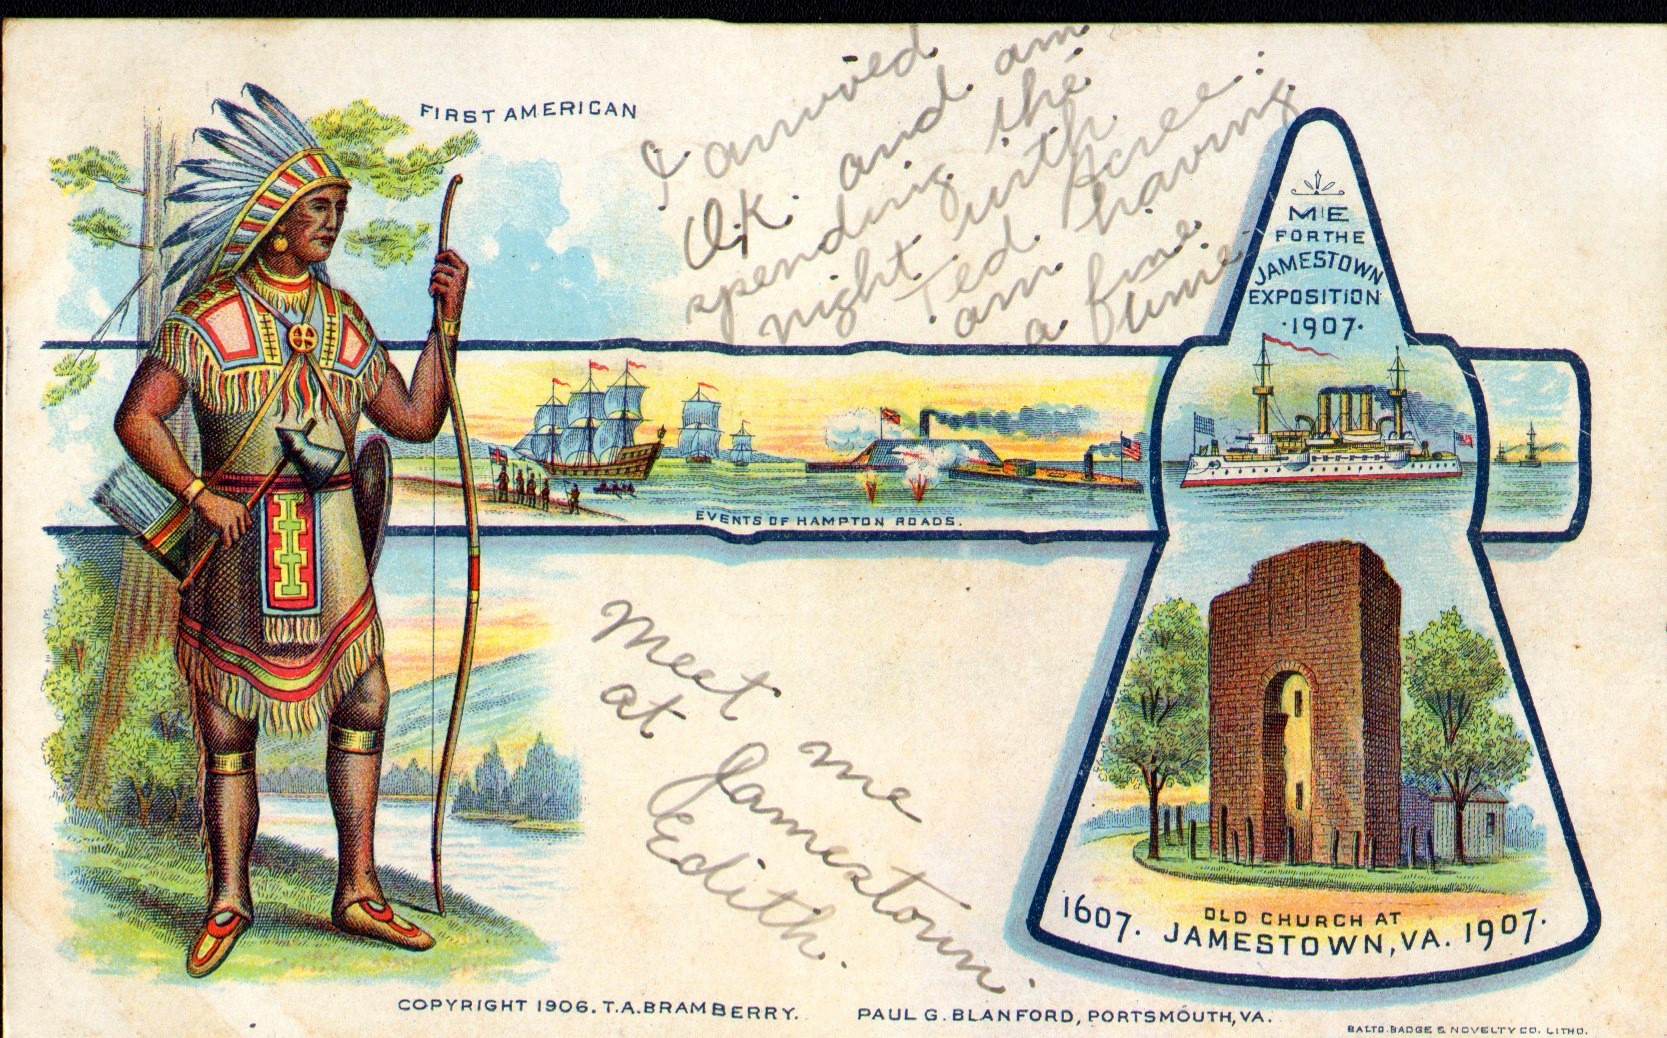 FIRST AMERICAN
I arrived
OK. and am
spending the
night with
Ted Acree:
am having
a fine
time
ME
FOR THE
JAMESTOWN
EXPOSITION
·1907·
EVENTS OF HAMPTON ROADS.
Meet me
at Jamestown.
Edith.
1607. OLD CHURCH AT
JAMESTOWN, VA. 1907.
COPYRIGHT 1906. T.A. BRAMBERRY. PAUL G. BLANFORD, PORTSMOUTH, VA.
BALTO. BADGE & NOVELTY CO. LITHO.